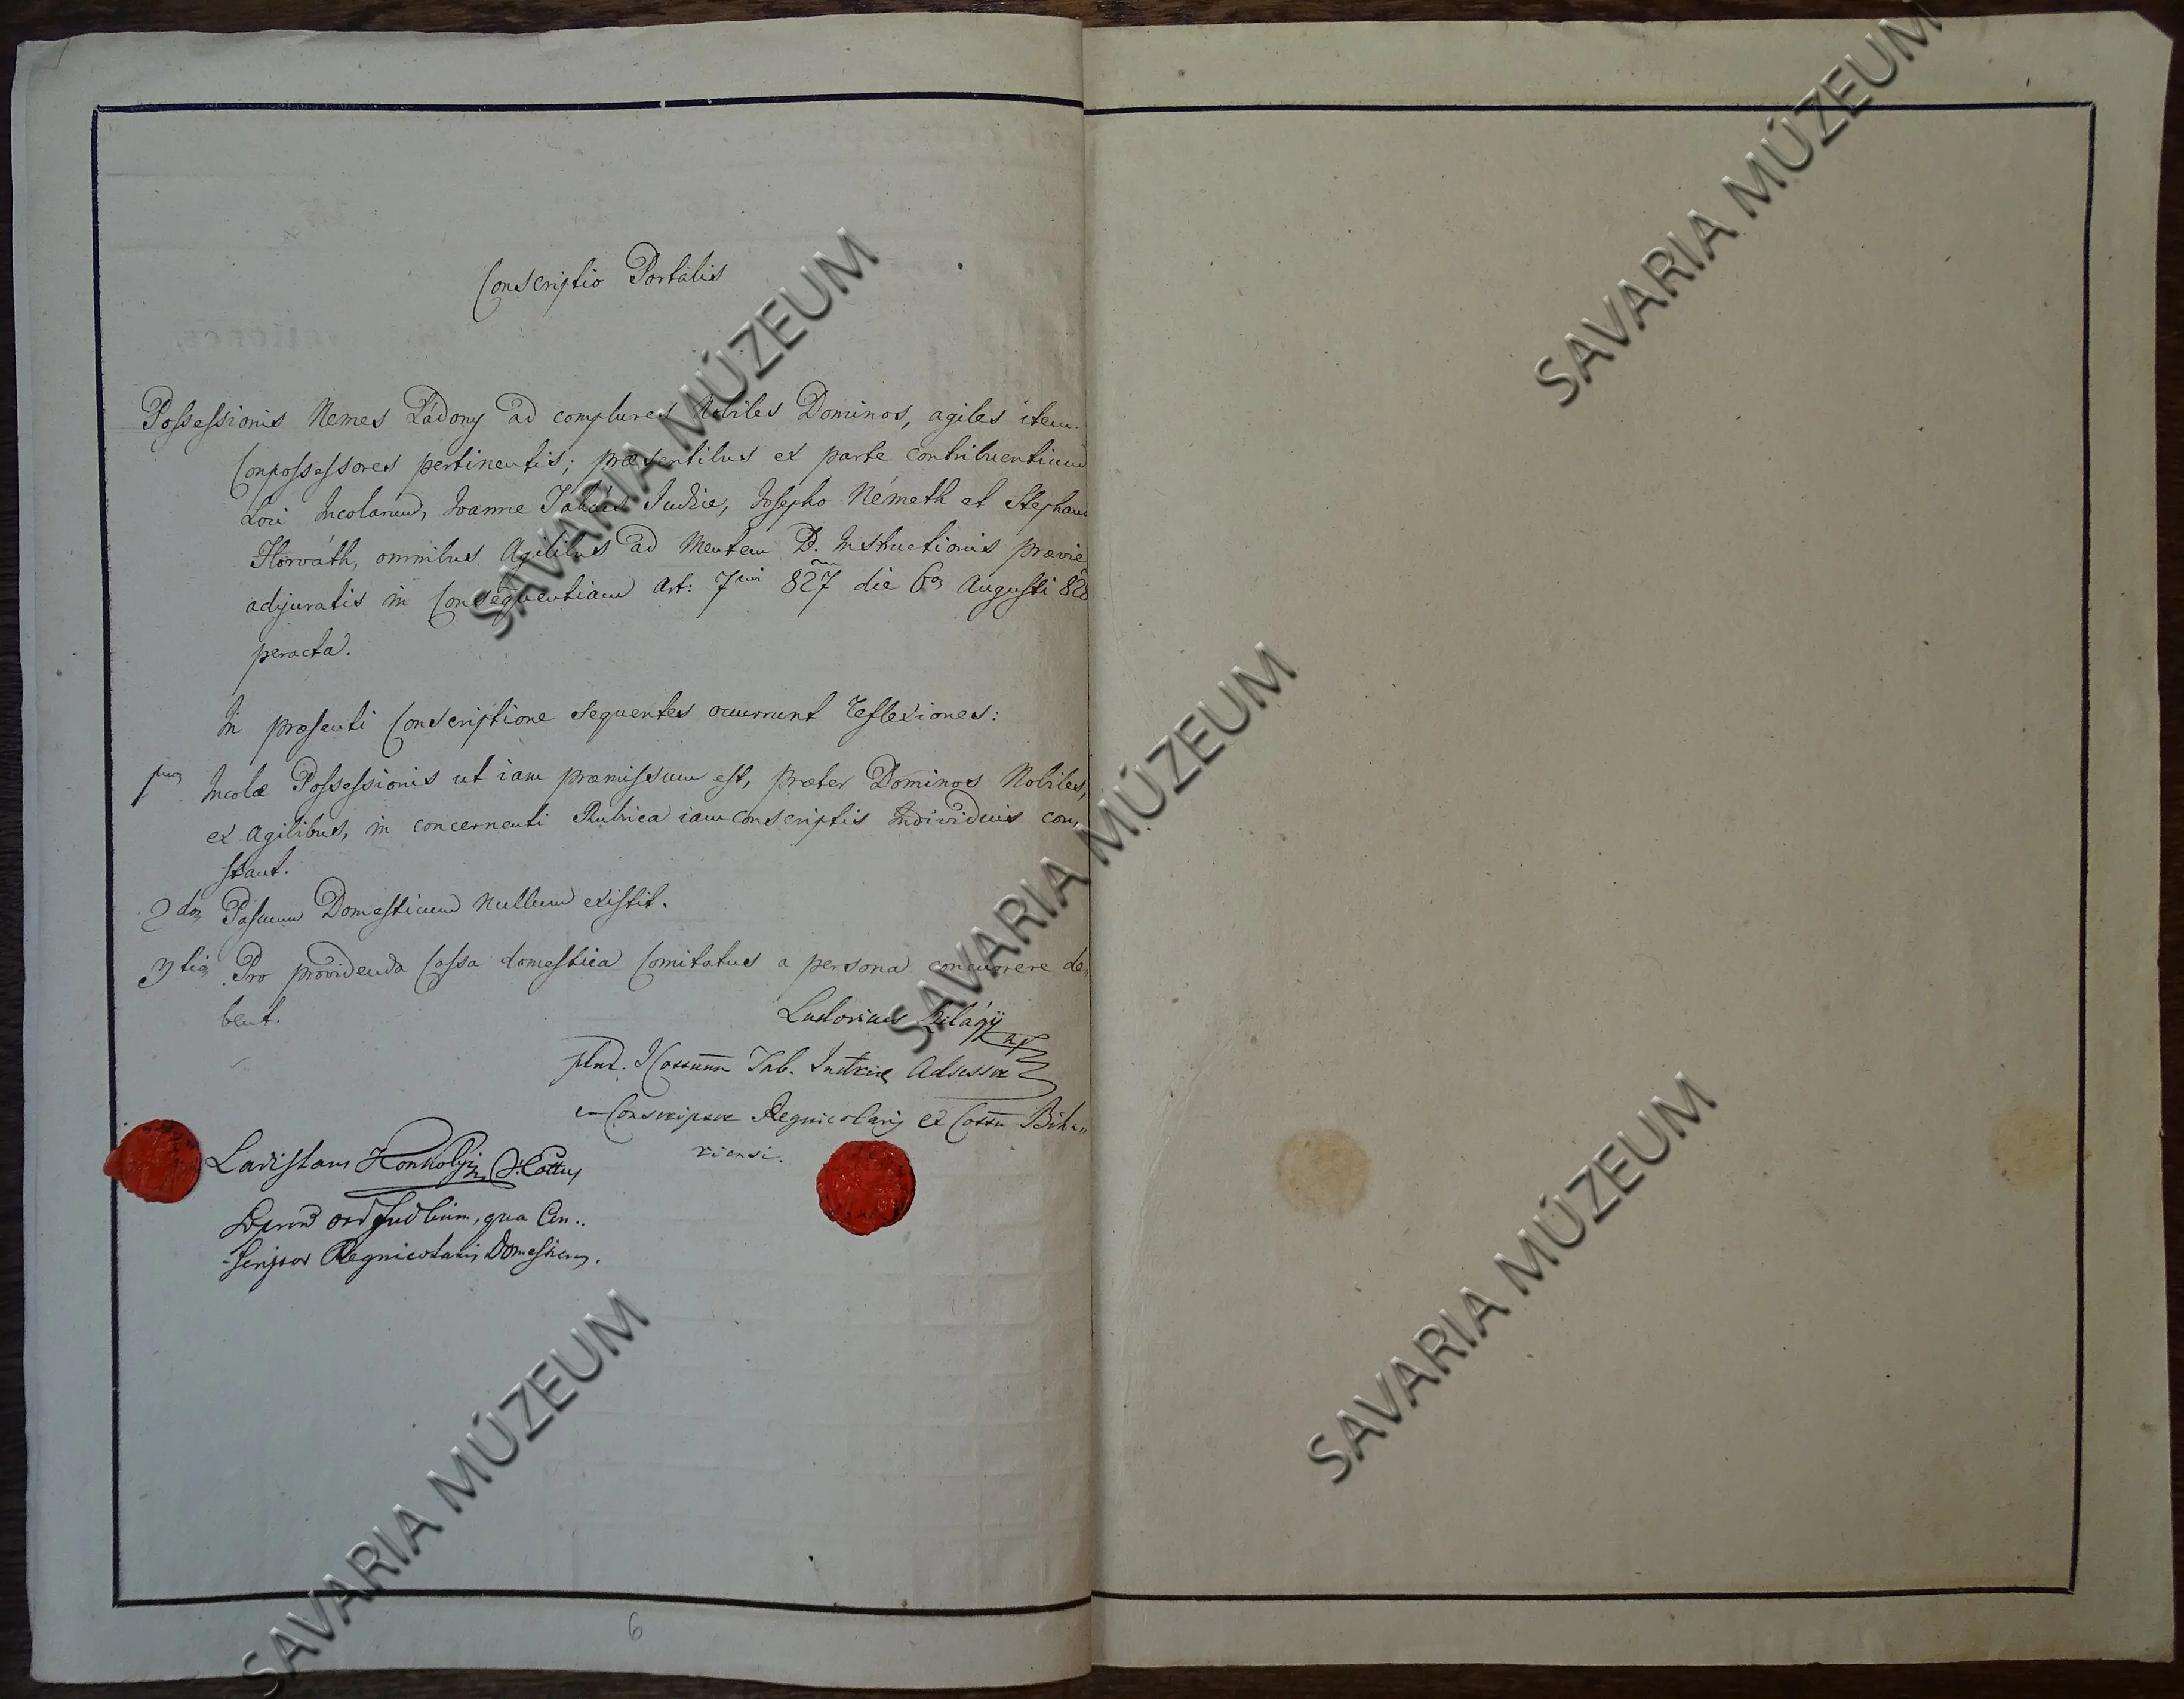 Conscriptio Portalis
Possessionis Nemes Ládony ad complures Nobiles Dominos, agiles item
Conpossessores pertinentis; præsentibus ex parte contribuentium
Loci Incolarum, Ioanne Takács Judice, Josepho Németh et Stephano
Horváth, omnibus Agilibus ad Mentem B. Instructionis prævie
adjuratis in Consequentiam Art: 7mi 827 die 6a Augusti 828
peracta.
In præsenti Conscriptione sequentes ocurrunt reflexiones:
1mo Incolæ Possessionis ut iam præmissum est, præter Dominos Nobiles,
ex Agilibus, in concernenti Rubrica iam conscriptis Individuis con,
stant.
2do Pascuum Domesticum nullum existit.
3tio Pro providenda Cassa domestica Comitatus a persona concurrere de,
bent.
Ludovicus
Tab. Judriae Adsessor
Conscriptor Regnicolaris ex Cottu Biha,,
riensi.
Ladislaus Konkolyi
ord Judlium, qua Con..
scriptor Regnicolaris Domesticus.
6
SAVARIA MÚZEUM
SAVARIA MÚZEUM
SAVARIA MÚZEUM
SAVARIA MÚZEUM
SAVARIA MÚZEUM